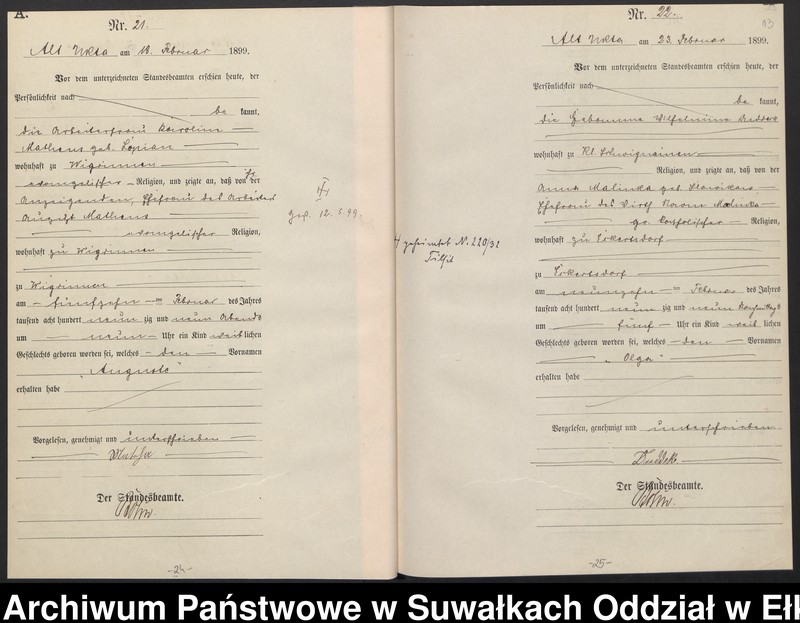 A.
Nr. 21.
Alt Ukta am 18. Februar 1899.
Vor dem unterzeichneten Standesbeamten erschien heute, der
Persönlichkeit nach
be kannt,
die Arbeiterfrau Karoline
Matheus geb. Lopian
wohnhaft zu Wigrinnen
evangelischer Religion, und zeigte an, daß von der
Anzeigenden, Ehefrau des Arbeiter
August Matheus
evangelischer Religion,
wohnhaft zu Wigrinnen
zu Wigrinnen
am fünfzehn ten Februar des Jahres
tausend acht hundert neun zig und neun Abends
um neun Uhr ein Kind weib lichen
Geschlechts geboren worden sei, welches den Vornamen
"Auguste"
erhalten habe
Vorgelesen, genehmigt und unterschrieben
Der Standesbeamte.
-24-
gest. 12. 5. 99.
Nr. 22.
13
Alt Ukta am 23. Februar 1899.
Vor dem unterzeichneten Standesbeamten erschien heute, der
Persönlichkeit nach
be kannt,
die Hebamme Wilhelmine
wohnhaft zu Kl.
Religion, und zeigte an, daß von der
Anna Malinka geb.
Ehefrau des Wirth Malinka
katholischer Religion,
wohnhaft zu Eckertsdorf
geheiratet N. 220/31
Tilsit
zu Eckertsdorf
am neunzehn ten Februar des Jahres
tausend acht hundert neun zig und neun Nachmittags
um fünf Uhr ein Kind weib lichen
Geschlechts geboren worden sei, welches den Vornamen
"Olga"
erhalten habe
Vorgelesen, genehmigt und unterschrieben
Der Standesbeamte.
-25-
Archiwum Państwowe w Suwałkach Oddział w Ełk